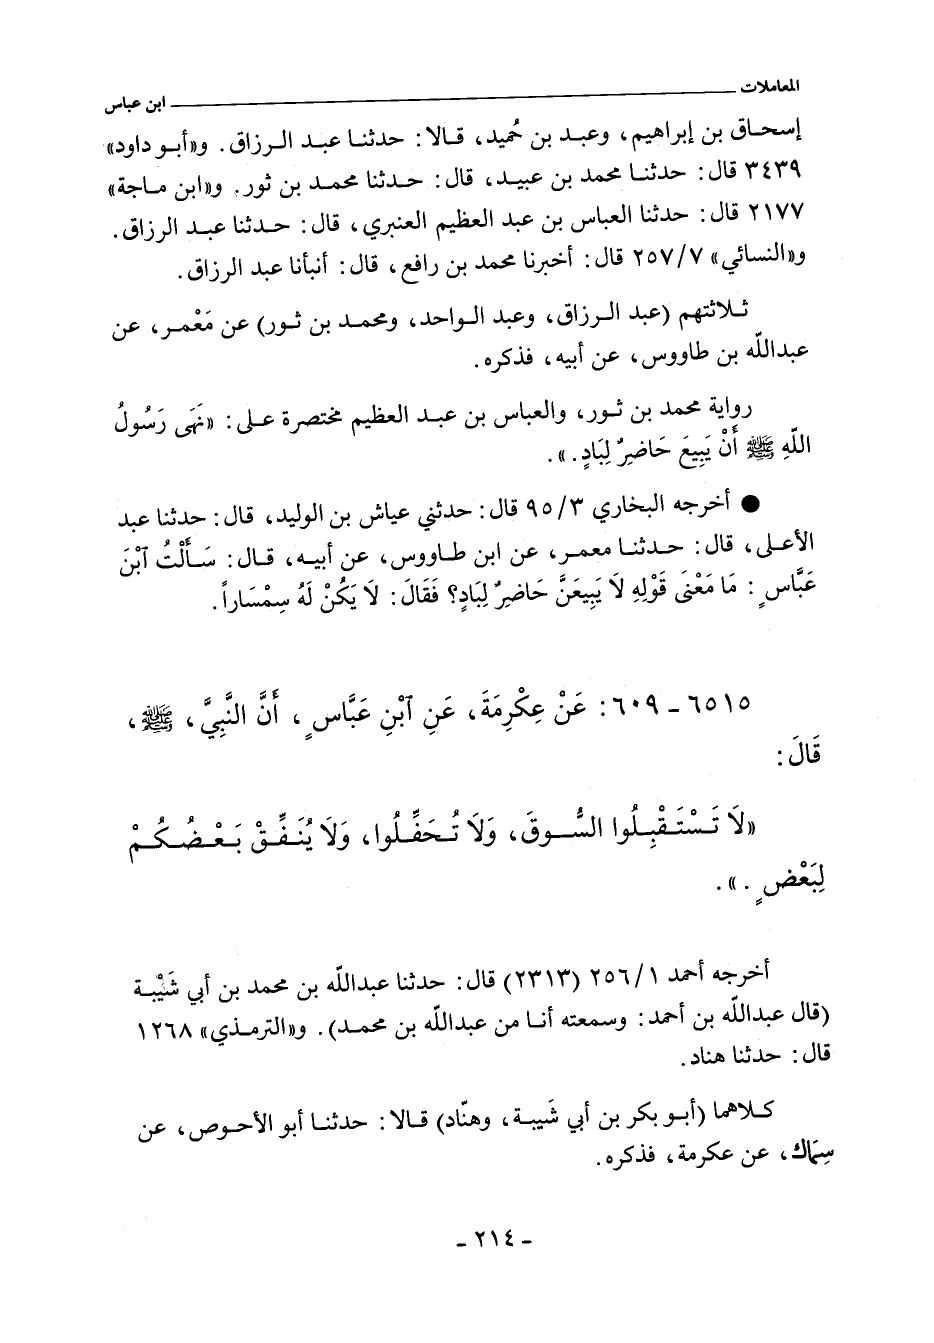 المعاملات ــــــــــــــــــــ ابن عباس
إسحاق بن إبراهيم، وعبد بن حُميد، قالا: حدثنا عبد الرزاق. و«أبو داود»
٣٤٣٩ قال: حدثنا محمد بن عبيد، قال: حدثنا محمد بن ثور. و«ابن ماجة»
٢١٧٧ قال: حدثنا العباس بن عبد العظيم العنبري، قال: حدثنا عبد الرزاق.
و«النسائي» ٢٥٧/٧ قال: أخبرنا محمد بن رافع، قال: أنبأنا عبد الرزاق.
ثلاثتهم (عبد الرزاق، وعبد الواحد، ومحمد بن ثور) عن مَعْمر، عن
عبدالله بن طاووس، عن أبيه، فذكره.
رواية محمد بن ثور، والعباس بن عبد العظيم مختصرة على: «نَهَى رَسُولُ
اللّهِ ﷺ أَنْ يَبِيعَ حَاضِرٌ لِبَادٍ.».
● أخرجه البخاري ٩٥/٣ قال: حدثني عياش بن الوليد، قال: حدثنا عبد
الأعلى، قال: حدثنا معمر، عن ابن طاووس، عن أبيه، قال: سَأَلْتُ آبْنَ
عَبَّاسٍ: مَا مَعْنَى قَوْلِهِ لَا يَبِيعَنَّ حَاضِرٌ لِبَادٍ؟ فَقَالَ: لَا يَكُنْ لَهُ سِمْسَاراً.
٦٥١٥ - ٦٠٩: عَنْ عِكْرِمَةَ، عَنِ آبْنِ عَبَّاسٍ، أَنَّ النَّبِيَّ، ﷺ،
قَالَ:
«لَا تَسْتَقْبِلُوا السُّوقَ، وَلَا تُحَفِّلُوا، وَلَا يُنَفِّقْ بَعْضُكُمْ
لِبَعْضٍ.».
أخرجه أحمد ٢٥٦/١ (٢٣١٣) قال: حدثنا عبدالله بن محمد بن أبي شَيْبة
(قال عبدالله بن أحمد: وسمعته أنا من عبدالله بن محمد). و«الترمذي» ١٢٦٨
قال: حدثنا هناد.
كلاهما (أبو بكر بن أبي شَيبة، وهنّاد) قالا: حدثنا أبو الأحوص، عن
سِمَاك، عن عكرمة، فذكره.
- ٢١٤ -